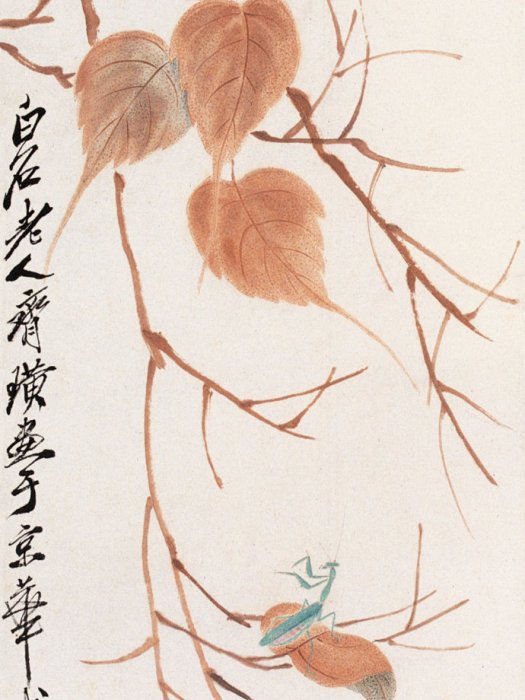 白石老人齊璜畫于京華